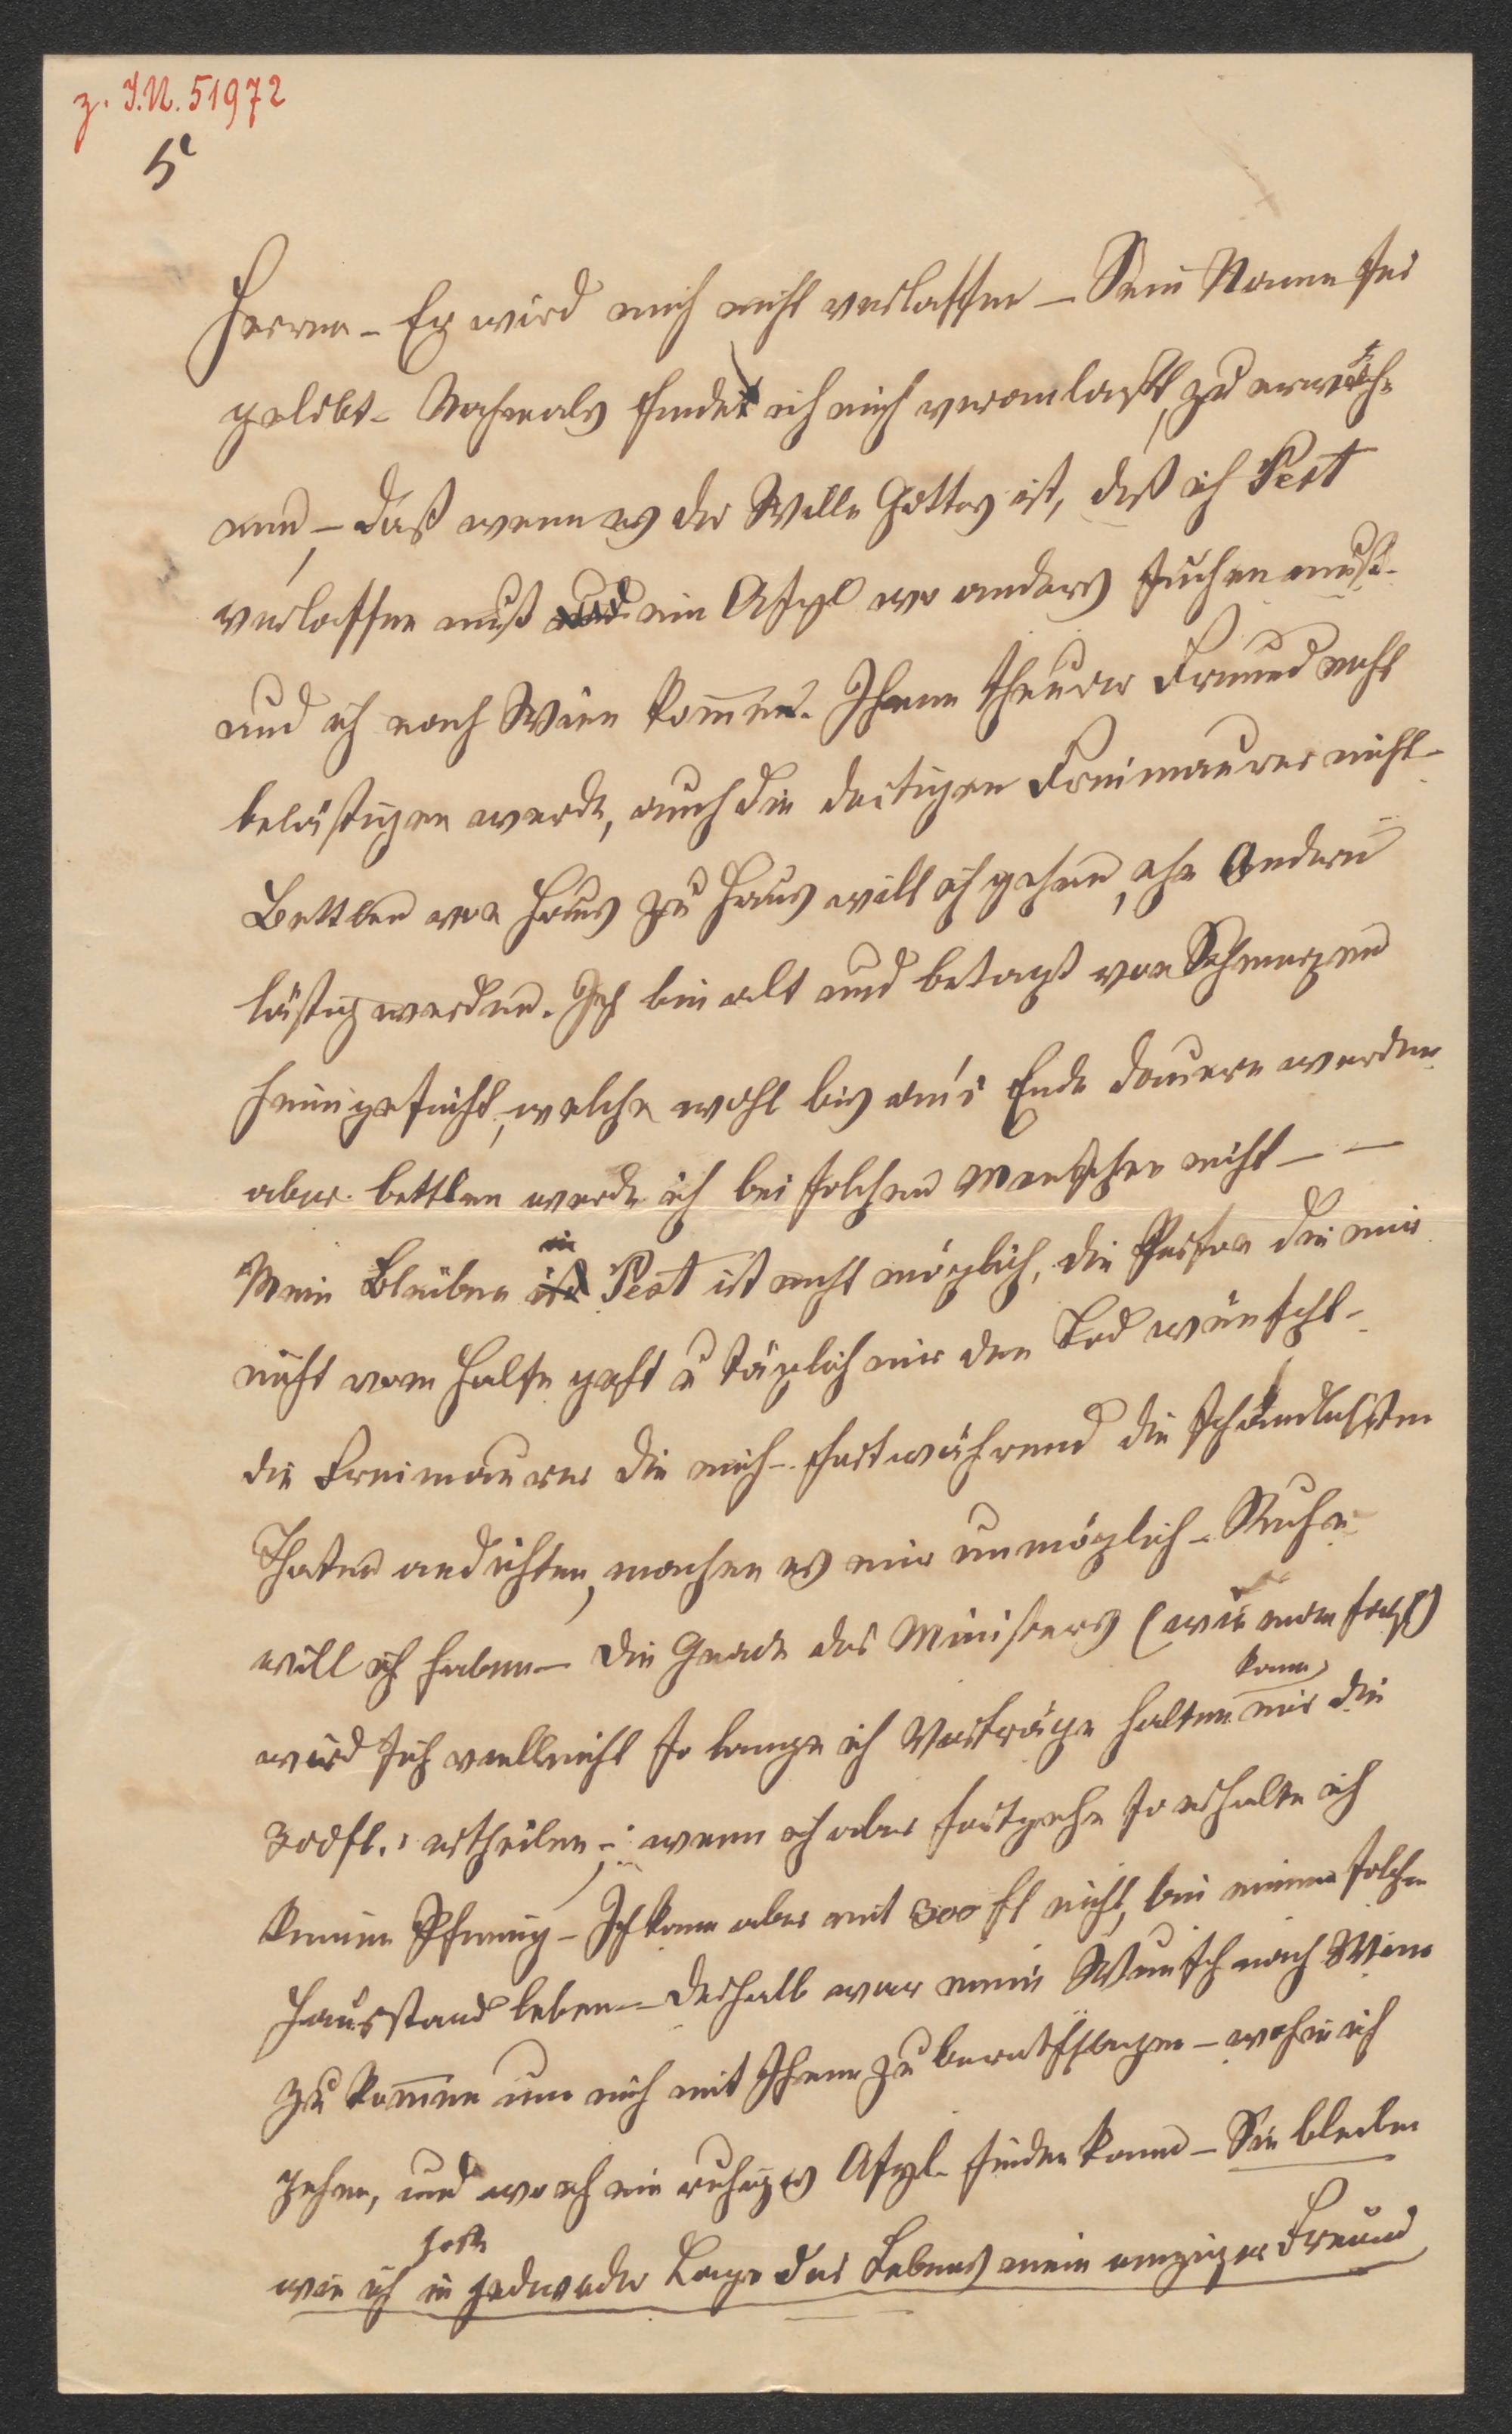 z. I.N. 51972
5
Herrn – Er wird mich nicht verlassen – Sein Name sei
gelobt – Nochmals finde ich mich veranlaßt, zu erwäh-
nen, – daß wenn es der Wille Gottes ist, daß ich Pest
verlassen muß ein Asyl wo anders suchen muß –
und ich nach Wien komme. Ihnen theurer Freund nicht
belästigen werde, auch die dortigen Freimaurer nicht –
Bettlen von Haus zu Haus will ich gehen, ehe Andern
lästig werden. Ich bin alt und betagt von Schmerzen
heimgesucht, welche wohl bis an's Ende dauern werden
aber bettlen werde ich bei solchen Menschen nicht – –
Mein Bleiben in Pest ist nicht möglich, die Person die mir
nicht vom Halse geht u täglich mir den Tod wünscht –
die Freimaurer die mich fortwährend die schändlichsten
Thaten andichten, machen es mir unmöglich – Ruhe
will ich haben – Die Gnade des Ministers (wie man sagt)
wird sich vielleicht so lange ich Vorträge halten kann mir die
300fl. ertheilen – wenn ich aber fortgehe so erhalte ich
keinen Pfennig – Ich kann aber mit 300 fl nicht, bei meinem solchen
Hausstand leben – Deshalb war mein Wunsch nach Wien
zu kommen um mich mit Ihnen zu berathschlagen – wohin ich
gehen, und wo ich ein ruhiges Asyl finden kann – Sie bleiben
wie ich hoffe in jedweder Lage des Lebens mein einziger Freund